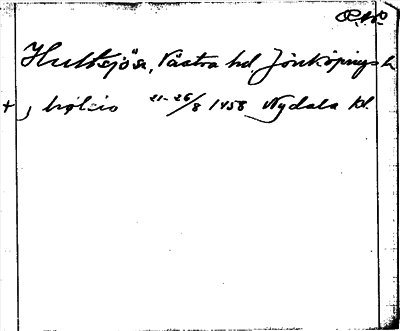 Hultsjö sn, Västra hd, Jönköpings l.
+, 21-26/8 1458 Nydala kl.